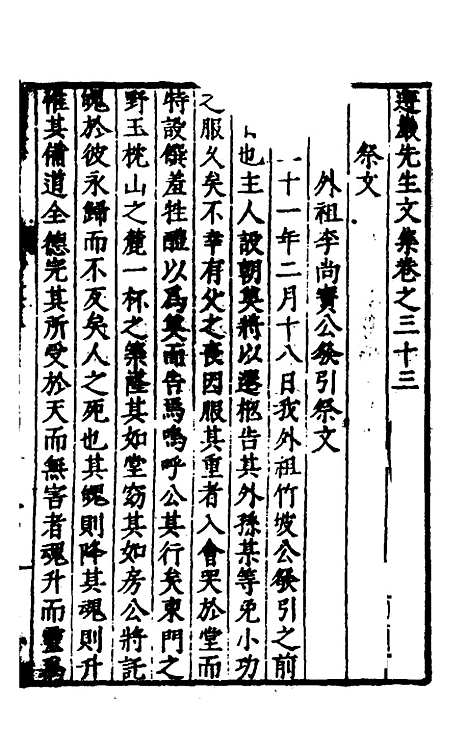 遵巖先生文集卷之三十三
祭文
外祖李尚寳公發引祭文
十一年二月十八日我外祖竹坡公發引之前
也主人設朝奠將以遷柩告其外孫某等免小功
之服久矣不幸有父之喪因服其重者入會哭於堂而
特設饌羞牲醴以爲奠而告焉嗚呼公其行矣東門之
野玉枕山之麓一杯之築窿其如堂窈其如房公將託
魄於彼永歸而不反矣人之死也其魄則降其魂則升
惟其備道全德完其所受於天而無害者魂升而靈爲